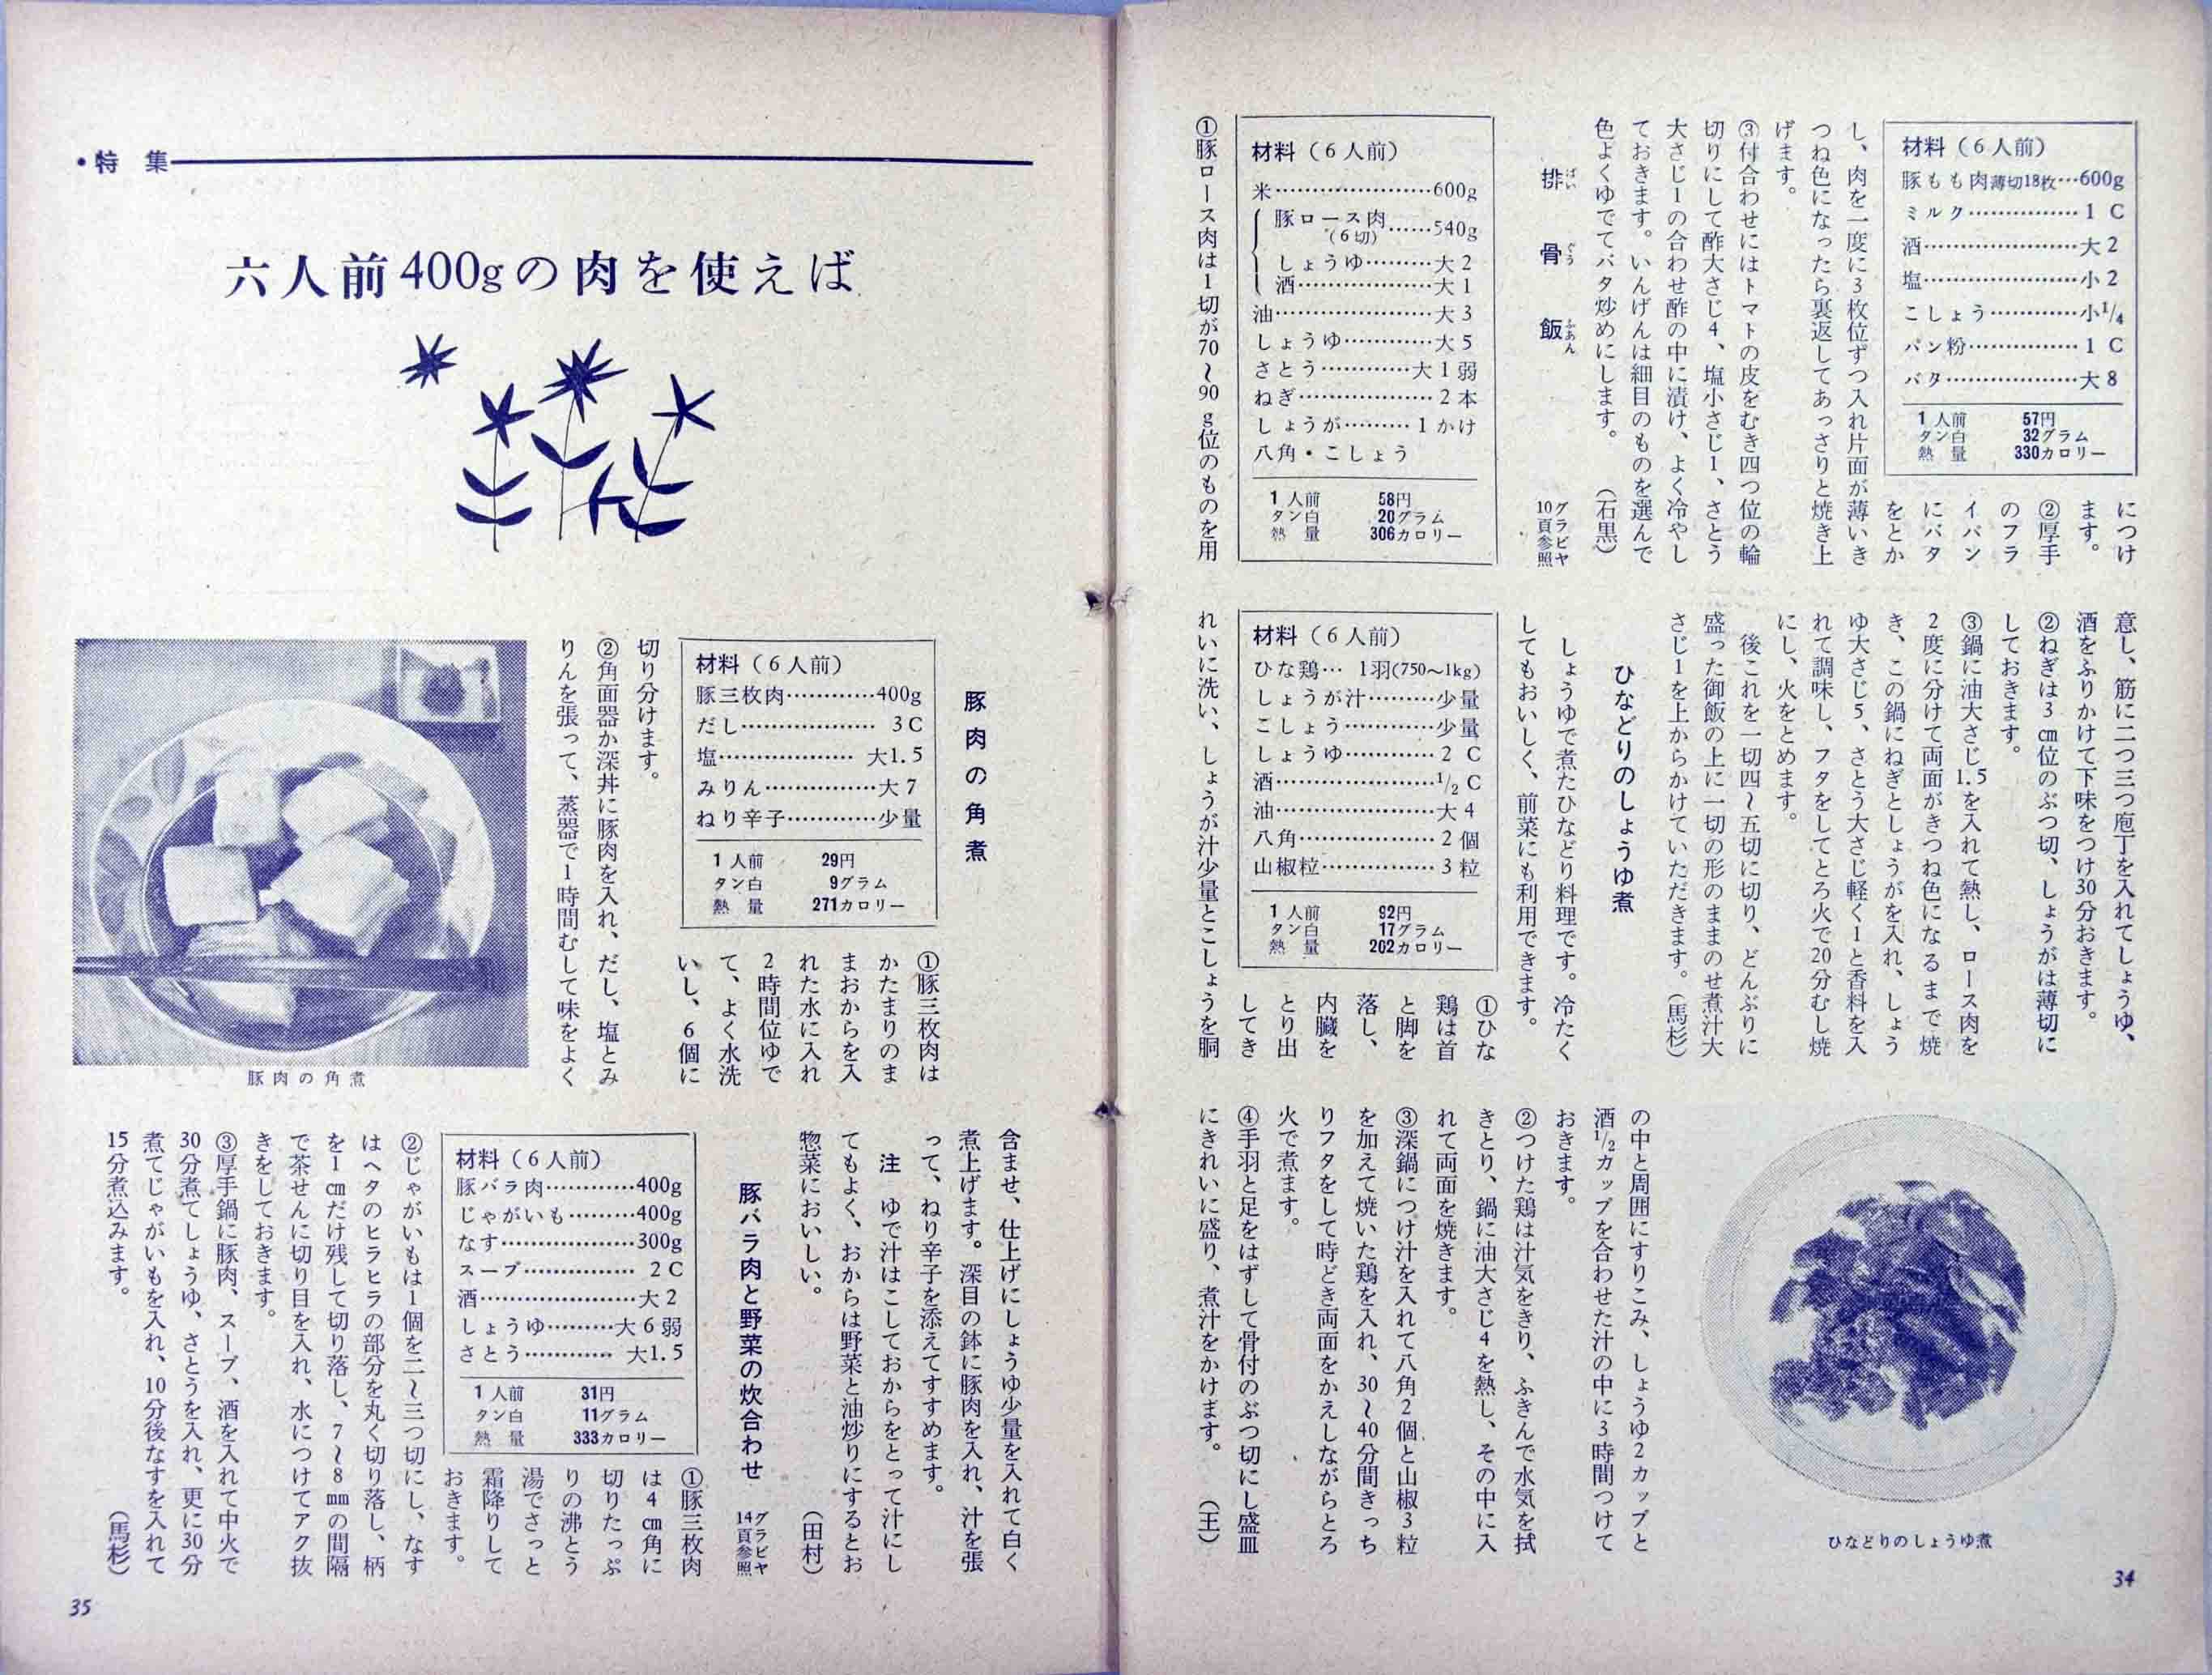 材料（6人前）
豚もも肉薄切18枚…600g
ミルク……………1 C
酒…………………大2
塩…………………小2
こしょう…………小1/4
パン粉……………1 C
バタ………………大8
1人前 57円
タン白 32グラム
熱量 330カロリー
につけ
ます。
②厚手
のフラ
イパン
にバタ
をとか
し、肉を一度に3枚位ずつ入れ片面が薄いき
つね色になったら裏返してあっさりと焼き上
げます。
③付合わせにはトマトの皮をむき四つ位の輪
切りにして酢大さじ4、塩小さじ1、さとう
大さじ1の合わせ酢の中に漬け、よく冷やし
ておきます。いんげんは細目のものを選んで
色よくゆでてバタ炒めにします。（石黒）
排骨飯
ぱいぐうふあん
グラビヤ
10頁参照
材料（6人前）
米…………………600g
豚ロース肉……540g
（6切）
しょうゆ………大2
酒………………大1
油…………………大3
しょうゆ…………大5
さとう…………大1弱
ねぎ………………2本
しょうが………1かけ
八角・こしょう
1人前 58円
タン白 20グラム
熱量 306カロリー
①豚ロース肉は1切が70〜90g位のものを用
意し、筋に二つ三つ庖丁を入れてしょうゆ、
酒をふりかけて下味をつけ30分おきます。
②ねぎは3cm位のぶつ切、しょうがは薄切に
しておきます。
③鍋に油大さじ1.5を入れて熱し、ロース肉を
2度に分けて両面がきつね色になるまで焼
き、この鍋にねぎとしょうがを入れ、しょう
ゆ大さじ5、さとう大さじ軽く1と香料を入
れて調味し、フタをしてとろ火で20分むし焼
にし、火をとめます。
後これを一切四〜五切に切り、どんぶりに
盛った御飯の上に一切の形のままのせ煮汁大
さじ1を上からかけていただきます。（馬杉）
ひなどりのしょうゆ煮
しょうゆで煮たひなどり料理です。冷たく
してもおいしく、前菜にも利用できます。
材料（6人前）
ひな鶏… 1羽(750〜1kg)
しょうが汁………少量
こしょう…………少量
しょうゆ…………2 C
酒…………………1/2 C
油…………………大4
八角………………2個
山椒粒……………3粒
1人前 92円
タン白 17グラム
熱量 202カロリー
①ひな
鶏は首
と脚を
落し、
内臓を
とり出
してき
れいに洗い、しょうが汁少量とこしょうを胴
の中と周囲にすりこみ、しょうゆ2カップと
酒1/2カップを合わせた汁の中に3時間つけて
おきます。
②つけた鶏は汁気をきり、ふきんで水気を拭
きとり、鍋に油大さじ4を熱し、その中に入
れて両面を焼きます。
③深鍋につけ汁を入れて八角2個と山椒3粒
を加えて焼いた鶏を入れ、30〜40分間きっち
りフタをして時どき両面をかえしながらとろ
火で煮ます。
④手羽と足をはずして骨付のぶつ切にし盛皿
にきれいに盛り、煮汁をかけます。（王）
ひなどりのしょうゆ煮
34
・特集
六人前400gの肉を使えば
豚肉の角煮
材料（6人前）
豚三枚肉…………400g
だし………………3C
塩………………大1.5
みりん……………大7
ねり辛子…………少量
1人前 29円
タン白 9グラム
熱量 271カロリー
①豚三枚肉は
かたまりのま
まおからを入
れた水に入れ
2時間位ゆで
て、よく水洗
いし、6個に
切り分けます。
②角面器か深丼に豚肉を入れ、だし、塩とみ
りんを張って、蒸器で1時間むして味をよく
豚肉の角煮
含ませ、仕上げにしょうゆ少量を入れて白く
煮上げます。深目の鉢に豚肉を入れ、汁を張
って、ねり辛子を添えてすすめます。
注 ゆで汁はこしておからをとって汁にし
てもよく、おからは野菜と油炒りにするとお
惣菜においしい。（田村）
豚バラ肉と野菜の炊合わせ
グラビヤ
14頁参照
材料（6人前）
豚バラ肉…………400g
じゃがいも………400g
なす………………300g
スープ……………2C
酒…………………大2
しょうゆ………大6弱
さとう…………大1.5
1人前 31円
タン白 11グラム
熱量 333カロリー
①豚三枚肉
は4cm角に
切りたっぷ
りの沸とう
湯でさっと
霜降りして
おきます。
②じゃがいもは1個を二〜三つ切にし、なす
はヘタのヒラヒラの部分を丸く切り落し、柄
を1cmだけ残して切り落し、7〜8mmの間隔
で茶せんに切り目を入れ、水につけてアク抜
きをしておきます。
③厚手鍋に豚肉、スープ、酒を入れて中火で
30分煮てしょうゆ、さとうを入れ、更に30分
煮てじゃがいもを入れ、10分後なすを入れて
15分煮込みます。（馬杉）
35